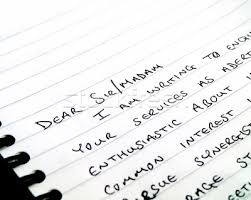 DEAR SIR/MADAM
I AM WRITING TO ENQU
YOUR SERVICES AS ADERT
ENTHUSIASTIC ABOUT
COMMON INTEREST
PURSUE SYNERGIST
AGE ST